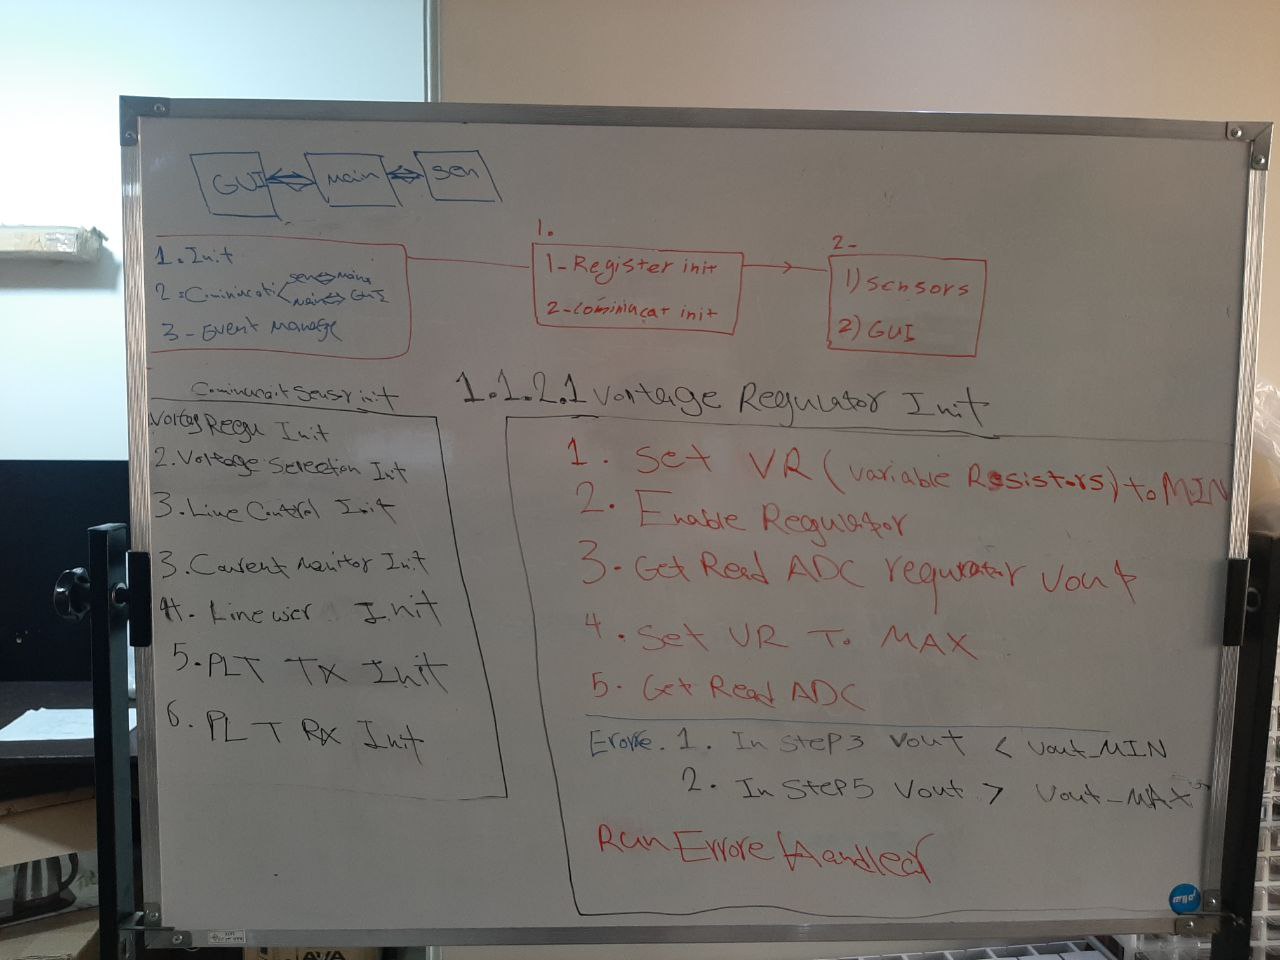 GUI Main Sen
1. Init
2. Cominucati sen⇔main
main⇔GUI
3 - Event Manage
1.
1- Register init
2- Cominucat init
2-
1) Sensors
2) GUI
Cominucait Sensr init
Voltag Regu Init
2. Voltage Selection Int
3. Line Control Init
3. Current Monitor Init
4. Line wer Init
5. PLT TX Init
6. PLT RX Init
1.1.2.1 Voltage Regulator Init
1. Set VR (variable Resistors) to MIN
2. Enable Regulator
3. Get Read ADC regulator Vout
4. Set VR To MAX
5. Get Read ADC
Erore. 1. In Step3 Vout < Vout_MIN
2. In Step5 Vout > Vout_MAX
Run Errore Handler